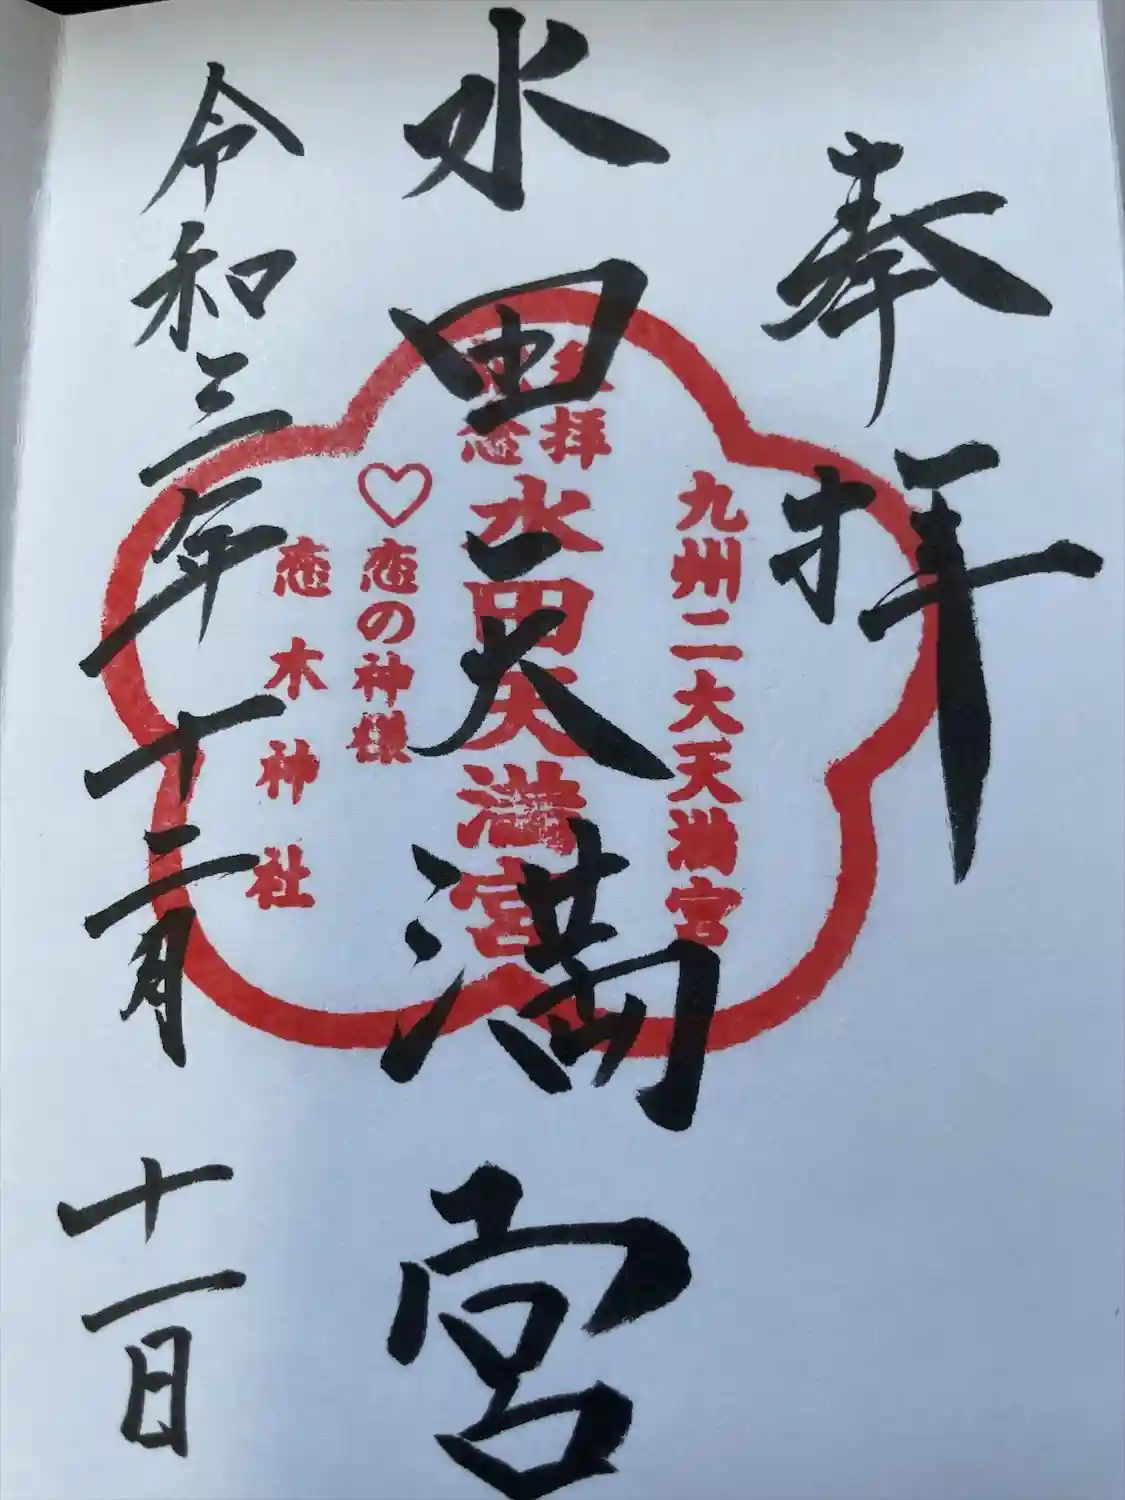 奉拝
九州二大天満宮
水田天満宮
水田天満宮
♡恋の神様
恋木神社
令和三年十二月十一日